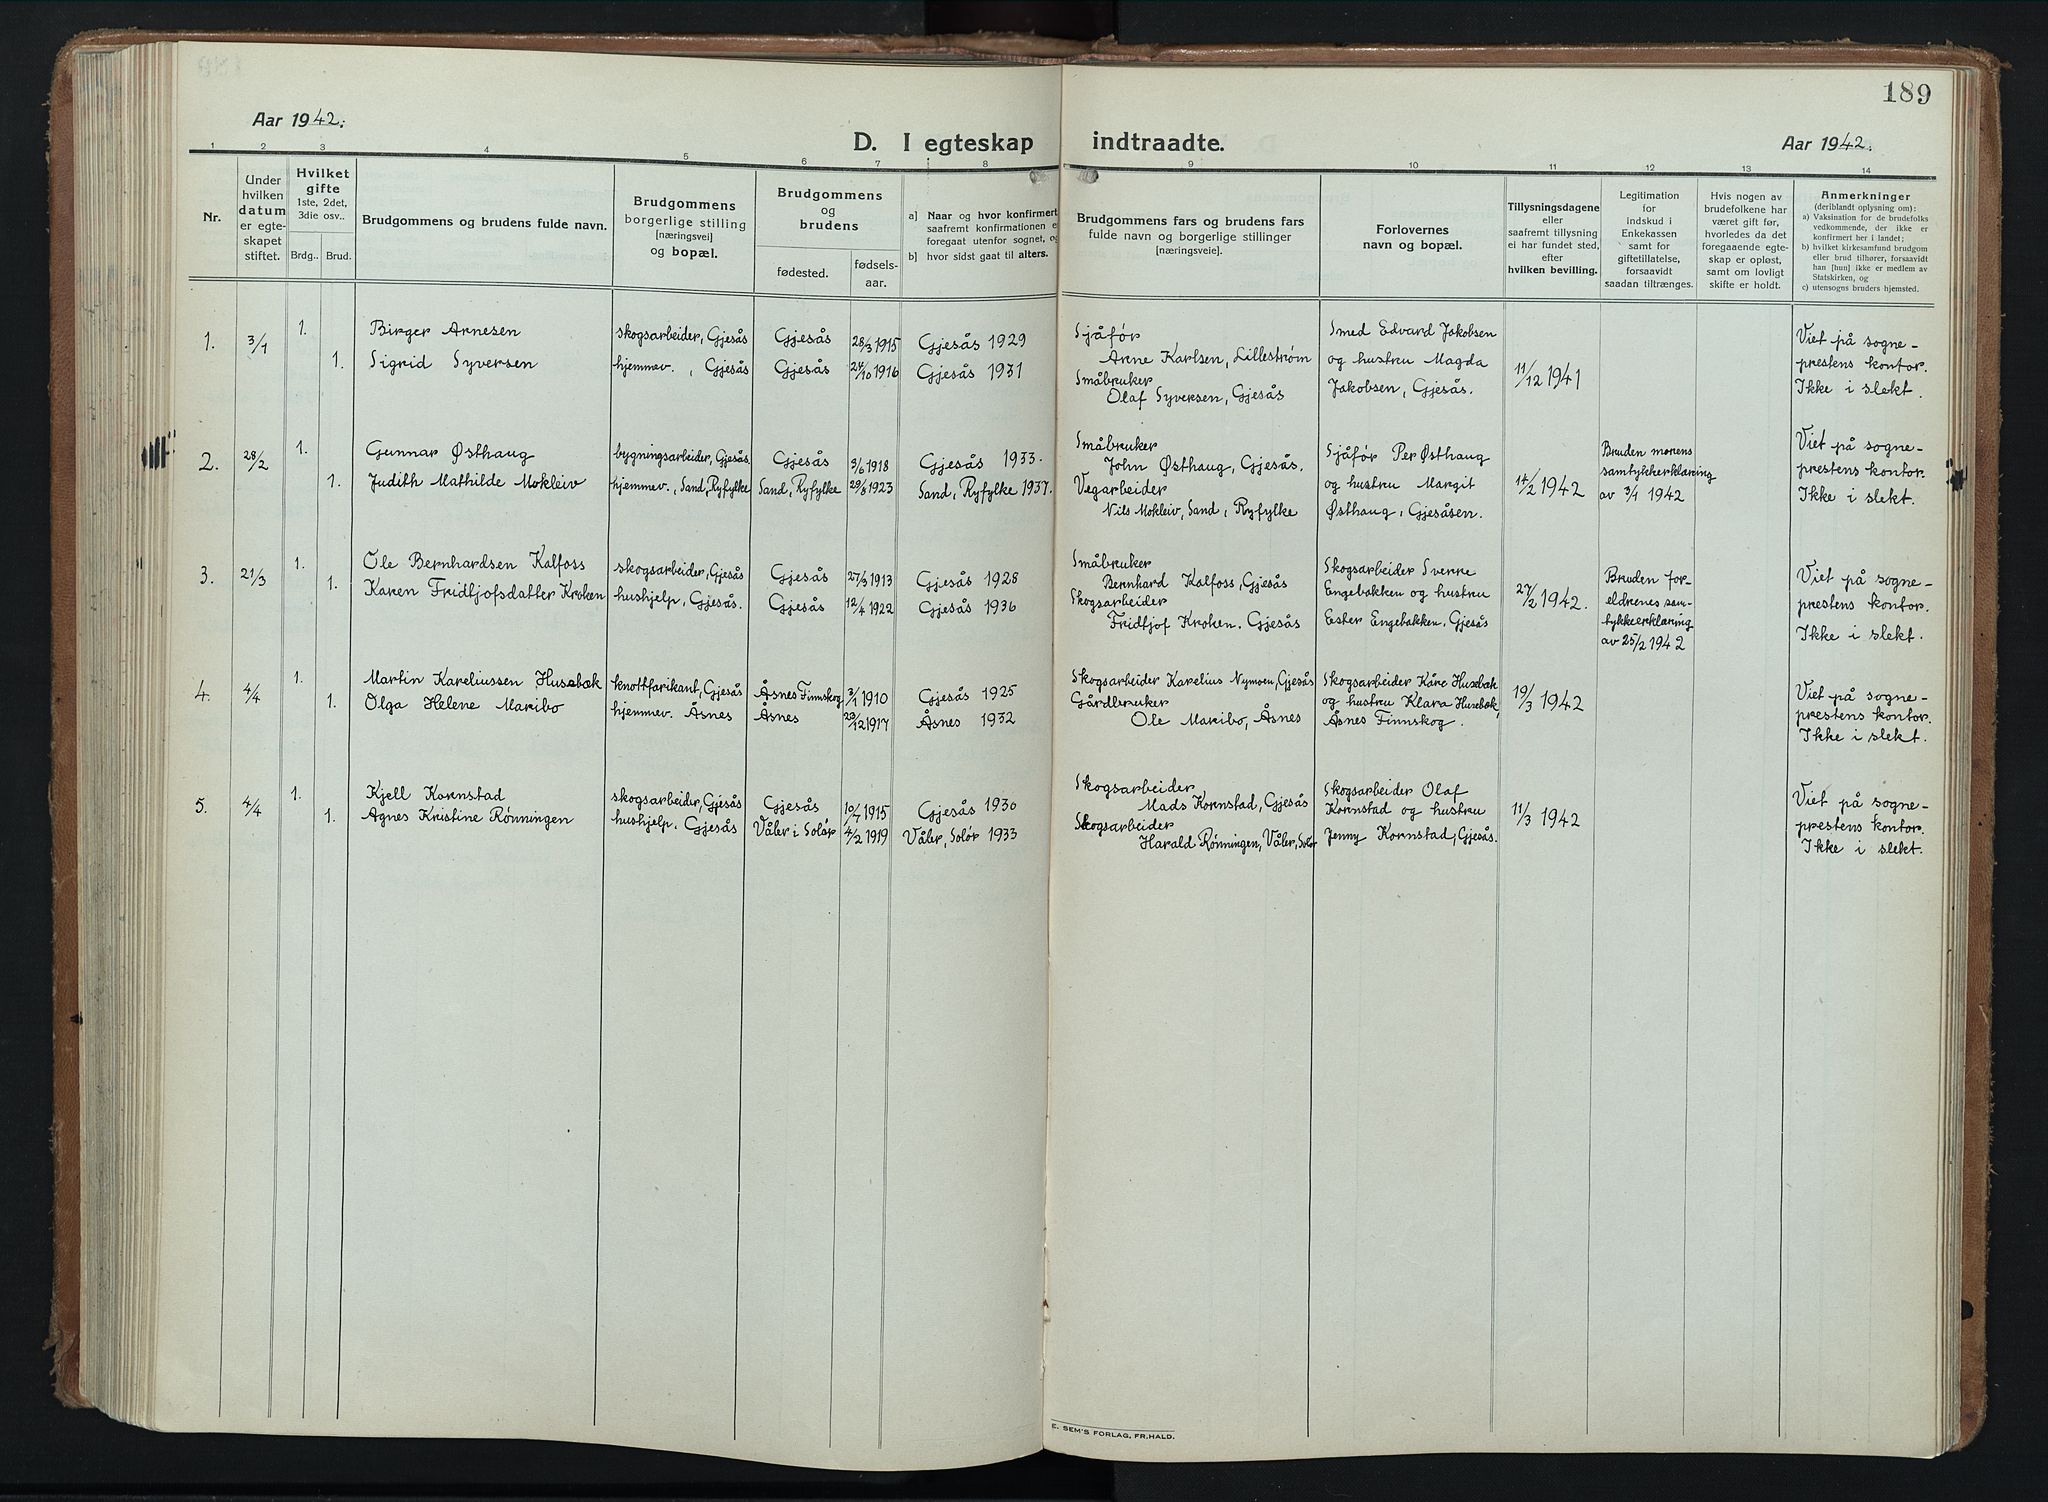 189
Aar 1942.
D. I egteskap indtraadte.
Aar 1942.
1 2 3 4 5 6 7 8 9 10 11 12 13 14
Nr.
Under
hvilken
datum
er egte-
skapet
stiftet.
Hvilket
gifte
1ste, 2det,
3die osv..
Brdg.. Brud.
Brudgommens og brudens fulde navn.
Brudgommens
borgerlige stilling
[næringsvei]
og bopæl.
Brudgommens
og
brudens
fødested.
fødsels-
aar.
a] Naar og hvor konfirmert
saafremt konfirmationen e
foregaat utenfor sognet, og
b] hvor sidst gaat til alters.
Brudgommens fars og brudens fars
fulde navn og borgerlige stillinger
[næringsveie].
Forlovernes
navn og bopæl.
Tillysningsdagene
eller
saafremt tillysning
ei har fundet sted,
efter
hvilken bevilling.
Legitimation
for
indskud i
Enkekassen
samt for
giftetillatelse,
forsaavidt
saadan tiltrænges.
Hvis nogen av
brudefolkene har
været gift før,
hvorledes da det
foregaaende egte-
skap er opløst,
samt om lovligt
skifte er holdt.
Anmerkninger
(deriblandt oplysning om):
a) Vaksination for de brudefolks
vedkommende, der ikke er
konfirmert her i landet;
b) hvilket kirkesamfund brudgom
eller brud tilhører, forsaavidt
han [hun] ikke er medlem av
Statskirken, og
c) utensogns bruders hjemsted.
1. 3/1 1. 1.
Birger Arnesen
Sigrid Syversen
skogsarbeider, Gjesås
hjemmev. , Gjesås
Gjesås 28/3 1915
Gjesås 24/10 1916
Gjesås 1929
Gjesås 1931
Sjåfør
Arne Karlsen, Lillestrøm
Småbruker
Olaf Syversen, Gjesås
Smed Edvard Jakobsen
og hustru Magda
Jakobsen, Gjesås.
11/12 1941
Viet på sogne-
prestens kontor.
Ikke i slekt.
2. 28/2 1. 1.
Gunnar Østhaug
Judith Mathilde Mokleiv
bygningsarbeider, Gjesås.
hjemmev., Sand, Ryfylke
Gjesås 3/6 1918
Sand, Ryfylke 29/8 1923
Gjesås 1933.
Sand, Ryfylke 1937.
Småbruker
John Østhaug, Gjesås.
Vegarbeider
Nils Mokleiv, Sand, Ryfylke
Sjåfør Per Østhaug
og hustru Margit
Østhaug, Gjesåsen.
14/2 1942
Bruden morens
samtykkerklæring
av 3/1 1942
Viet på sogne-
prestens kontor.
Ikke i slekt.
3. 21/3 1. 1.
Ole Bernhardsen Kalfoss
Karen Fridtjofsdatter Kroken
skogsarbeider, Gjesås
hushjelp, Gjesås.
Gjesås 27/3 1913
Gjesås 12/4 1922
Gjesås 1928
Gjesås 1936
Småbruker
Bernhard Kalfoss, Gjesås
Skogsarbeider
Fridtjof Kroken. Gjesås
Skogsarbeider Sverre
Engebakken og hustru
Ester Engebakken, Gjesås
27/2 1942.
Bruden for-
eldrenes sam-
tykkeerklæring
av 25/2 1942
Viet på sogne-
prestens kontor.
Ikke i slekt.
4. 4/4 1. 1.
Martin Kareliussen Husebæk
Olga Helene Maribo
knottfarikant, Gjesås
hjemmev. Åsnes
Åsnes Finnskog 3/1 1910
Åsnes 23/12 1917
Gjesås 1925
Åsnes 1932
Skogsarbeider Karelius Nymoen, Gjesås
Gårdbruker
Ole Maribo, Åsnes
Skogsarbeider Kåre Husebæk
og hustru Klara Husebæk,
Åsnes Finnskog.
19/3 1942
Viet på sogne-
prestens kontor.
Ikke i slekt.
5. 4/4 1. 1.
Kjell Kornstad
Agnes Kristine Rønningen
skogsarbeider, Gjesås
hushjelp. Gjesås
Gjesås 10/7 1915
Våler i Solør 4/2 1919
Gjesås 1930
Våler, Solør 1933
Skogsarbeider
Mads Kornstad, Gjesås
Skogsarbeider
Harald Rønningen, Våler, Solør
Skogsarbeider Olaf
Kornstad og hustru
Jenny Kornstad, Gjesås.
11/3 1942
Viet på sogne-
prestens kontor.
Ikke i slekt.
E. SEM'S FORLAG, FR.HALD.